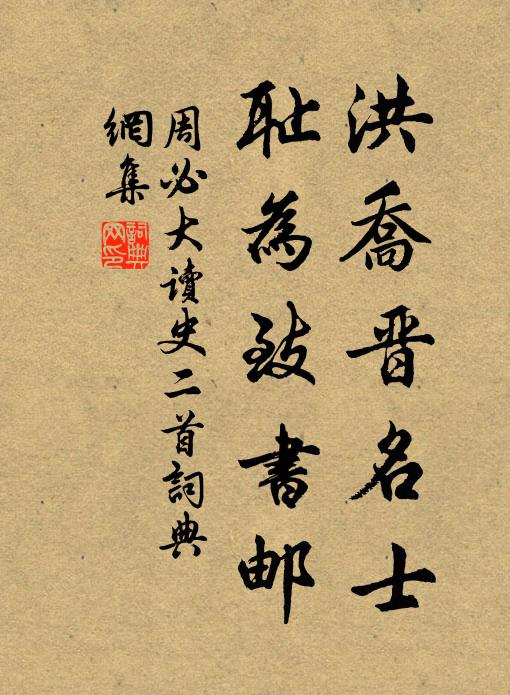 洪喬晋名士
耻為致書邮
周必大讀史二首詞典
網集
詞典网印